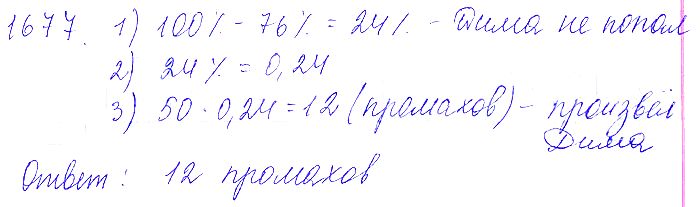 1677. 1) 100% - 76% = 24% - Дима не попал
2) 24% = 0,24
3) 50 · 0,24 = 12 (промахов) - произвёл
Дима
Ответ: 12 промахов